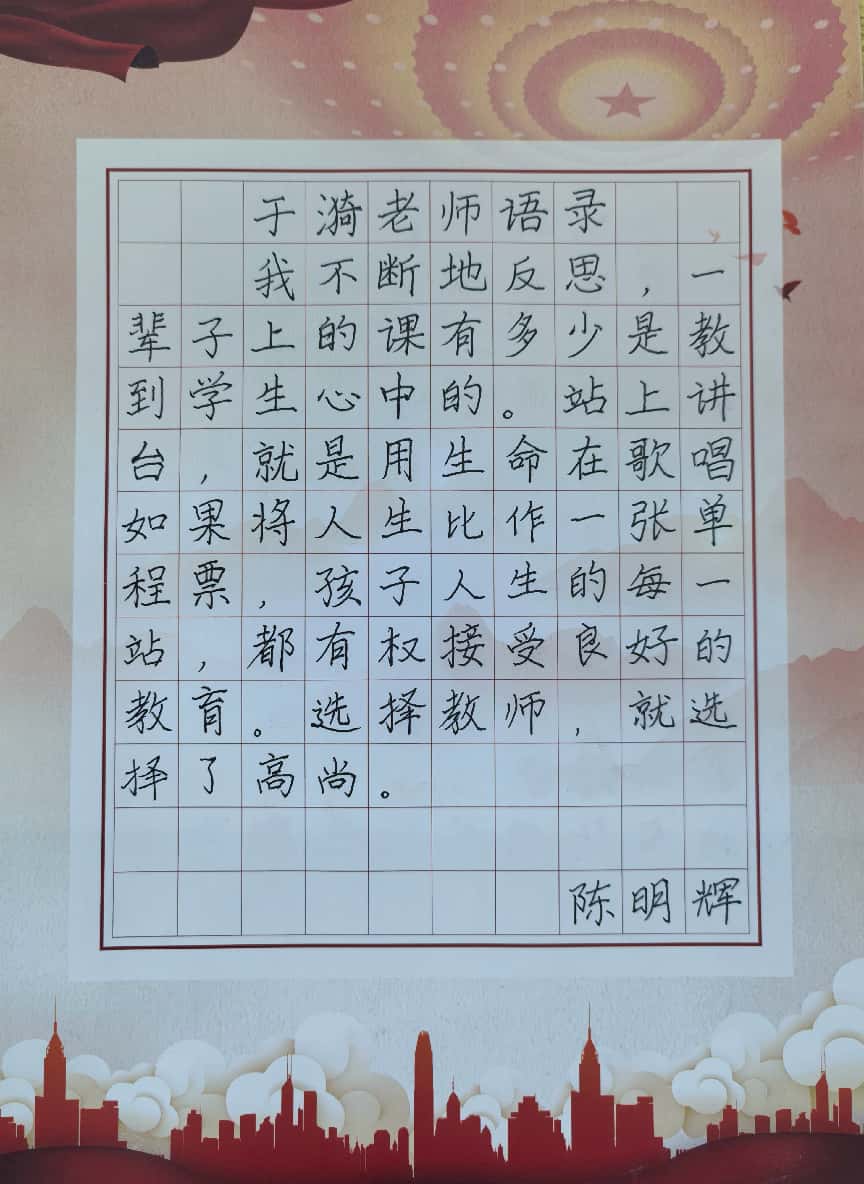 于漪老师语录
我不断地反思，一
辈子上的课有多少是教
到学生心中的。站上讲
台，就是用生命在歌唱
如果将人生比作一张单
程票，孩子人生的每一
站，都有权接受良好的
教育。选择教师，就选
择了高尚。
陈明辉